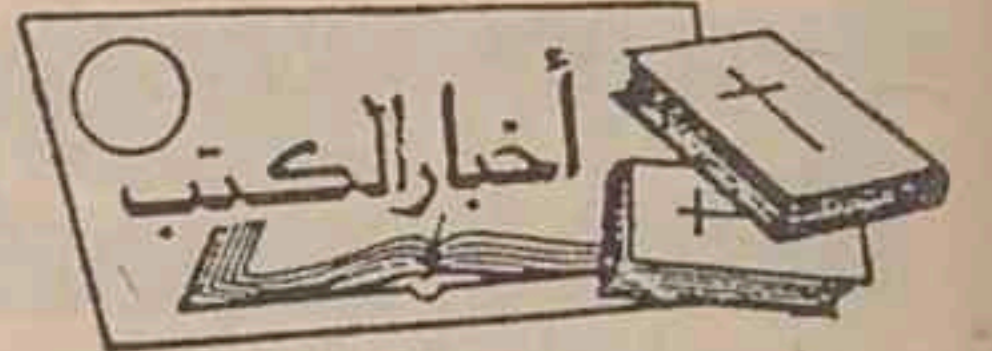 أخبار الكتب